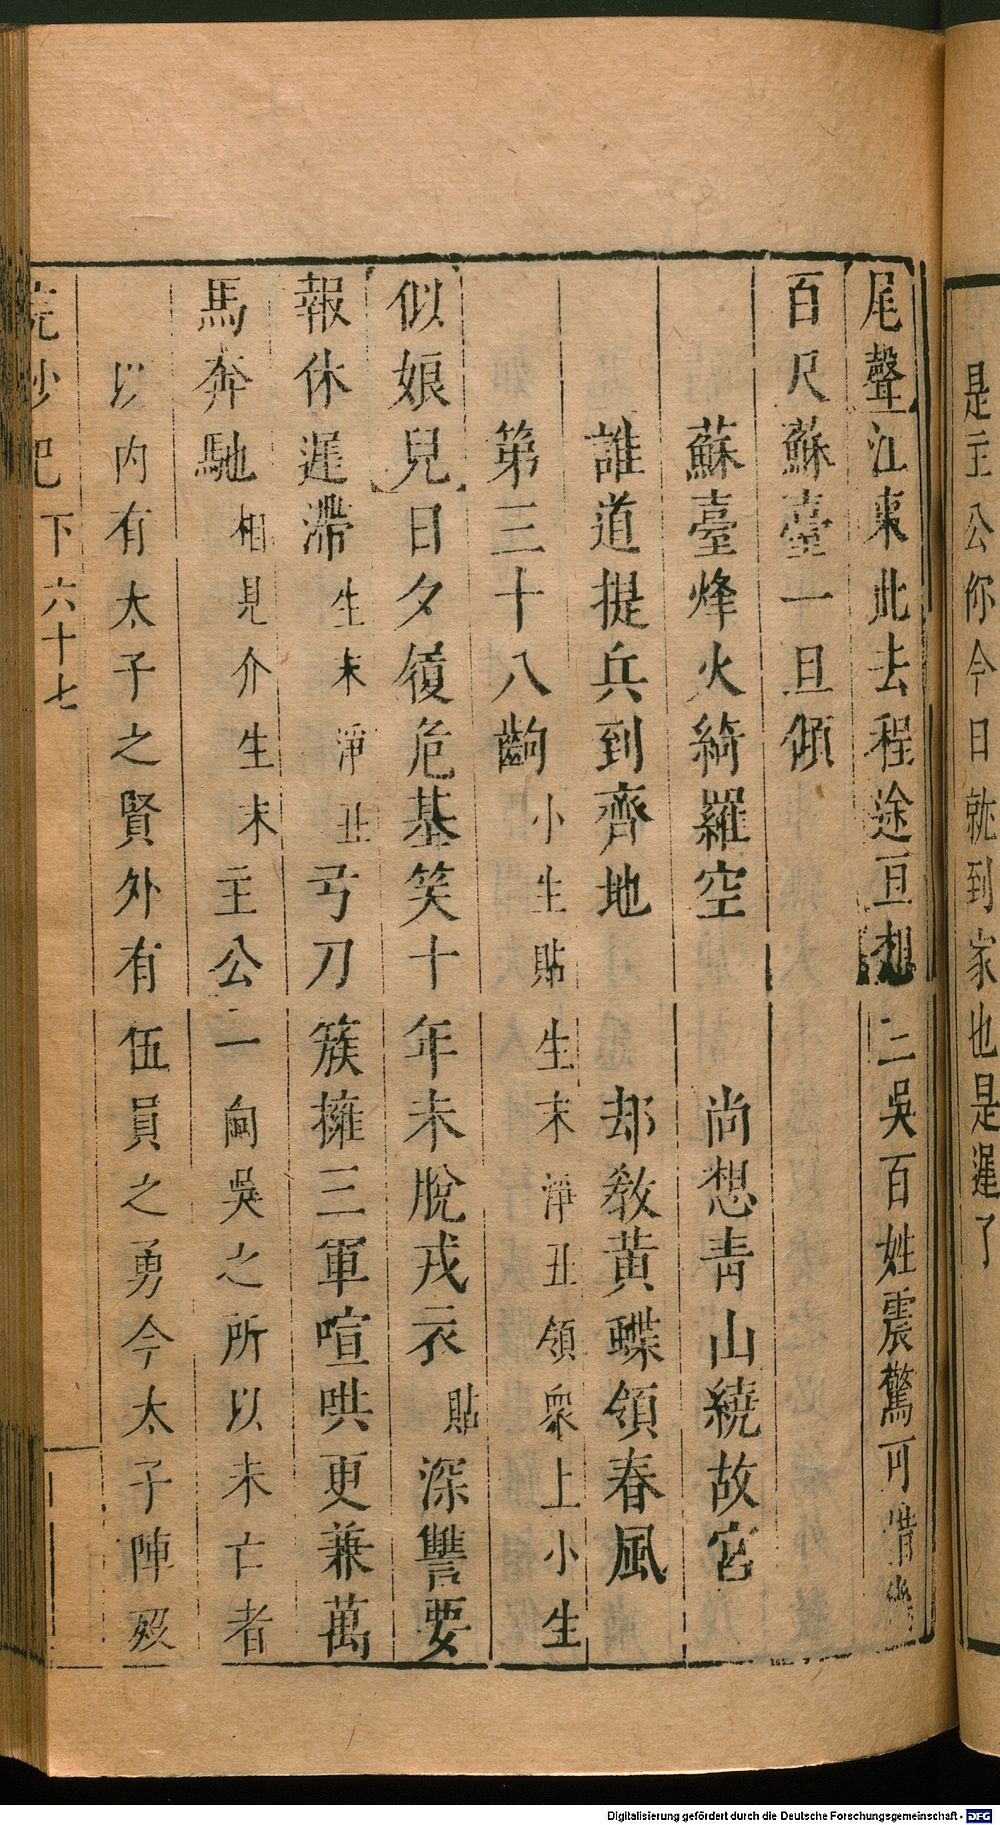 是主公你今日就到家也是遲了
尾聲江東此去程途亘想三吳百姓震驚可惜
百尺蘇臺一旦傾
蘇臺烽火綺羅空　尚想青山繞故宮
誰道提兵到齊地　却敎黄蝶領春風
第三十八齣小生貼生末淨丑領衆上小生
似娘兒日夕履危基笑十年未脫戎衣貼深讐要
報休遲滯生末淨丑弓刀簇擁三軍喧哄更兼萬
馬奔馳相見介生末主公一向吳之所以未亡者
以内有太子之賢外有伍員之勇今太子陣歿
浣紗記 下 六十七
Digitalisierung gefördert durch die Deutsche Forschungsgemeinschaft - DFG